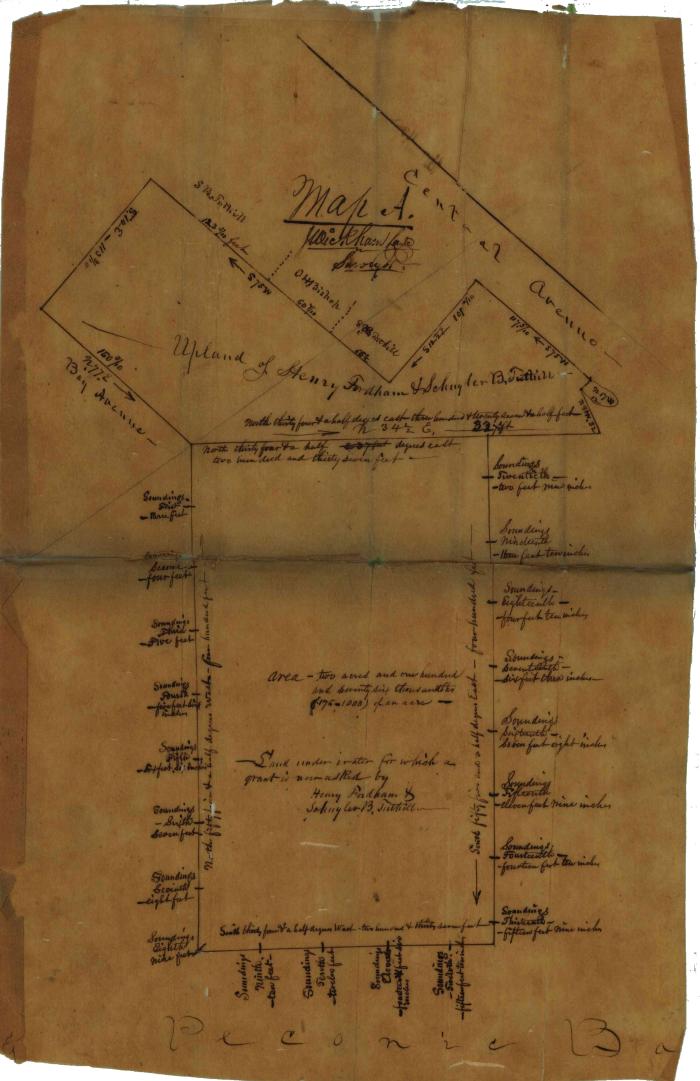 Central Avenue
Map A.
Wickham
Survey.
S. B. Tuthill
S 75 W
O. H. Bishop
Upland of Henry Fordham & Schuyler B. Tuthill
Bay Avenue
North thirty four & a half degrees east three hundred & twenty seven & a half feet
N 34½ E.
North thirty four & a half degrees east
two hundred and thirty seven feet
Soundings
First
three feet
Second
four feet
Soundings
Third
Five feet
Soundings
Fourth
Soundings
Fifth
Soundings
Sixth
Seven feet
Soundings
Seventh
eight feet
Soundings
Eighth
Nine feet
Soundings
Twentieth
two feet nine inches
Soundings
Nineteenth
three feet ten inches
Soundings
Eighteenth
four feet ten inches
Soundings
Seventeenth
six feet three inches
Soundings
Sixteenth
Seven feet eight inches
Soundings
Fifteenth
eleven feet nine inches
Soundings
Fourteenth
fourteen feet ten inches
Soundings
Thirteenth
fifteen feet nine inches
North fifty five & a half degrees West four hundred feet
South fifty five and a half degrees East four hundred feet
Area - two acres and one hundred
and seventy six thousandths
(176-1000) of an acre
Land under water for which a
grant is now asked by
Henry Fordham &
Schuyler B. Tuthill
South thirty four & a half degrees West two hundred & thirty seven feet
Soundings
Ninth
ten feet
Soundings
Tenth
twelve feet
Soundings
Eleventh
Soundings
Twelfth
fifteen feet ten inches
Peconic Ba